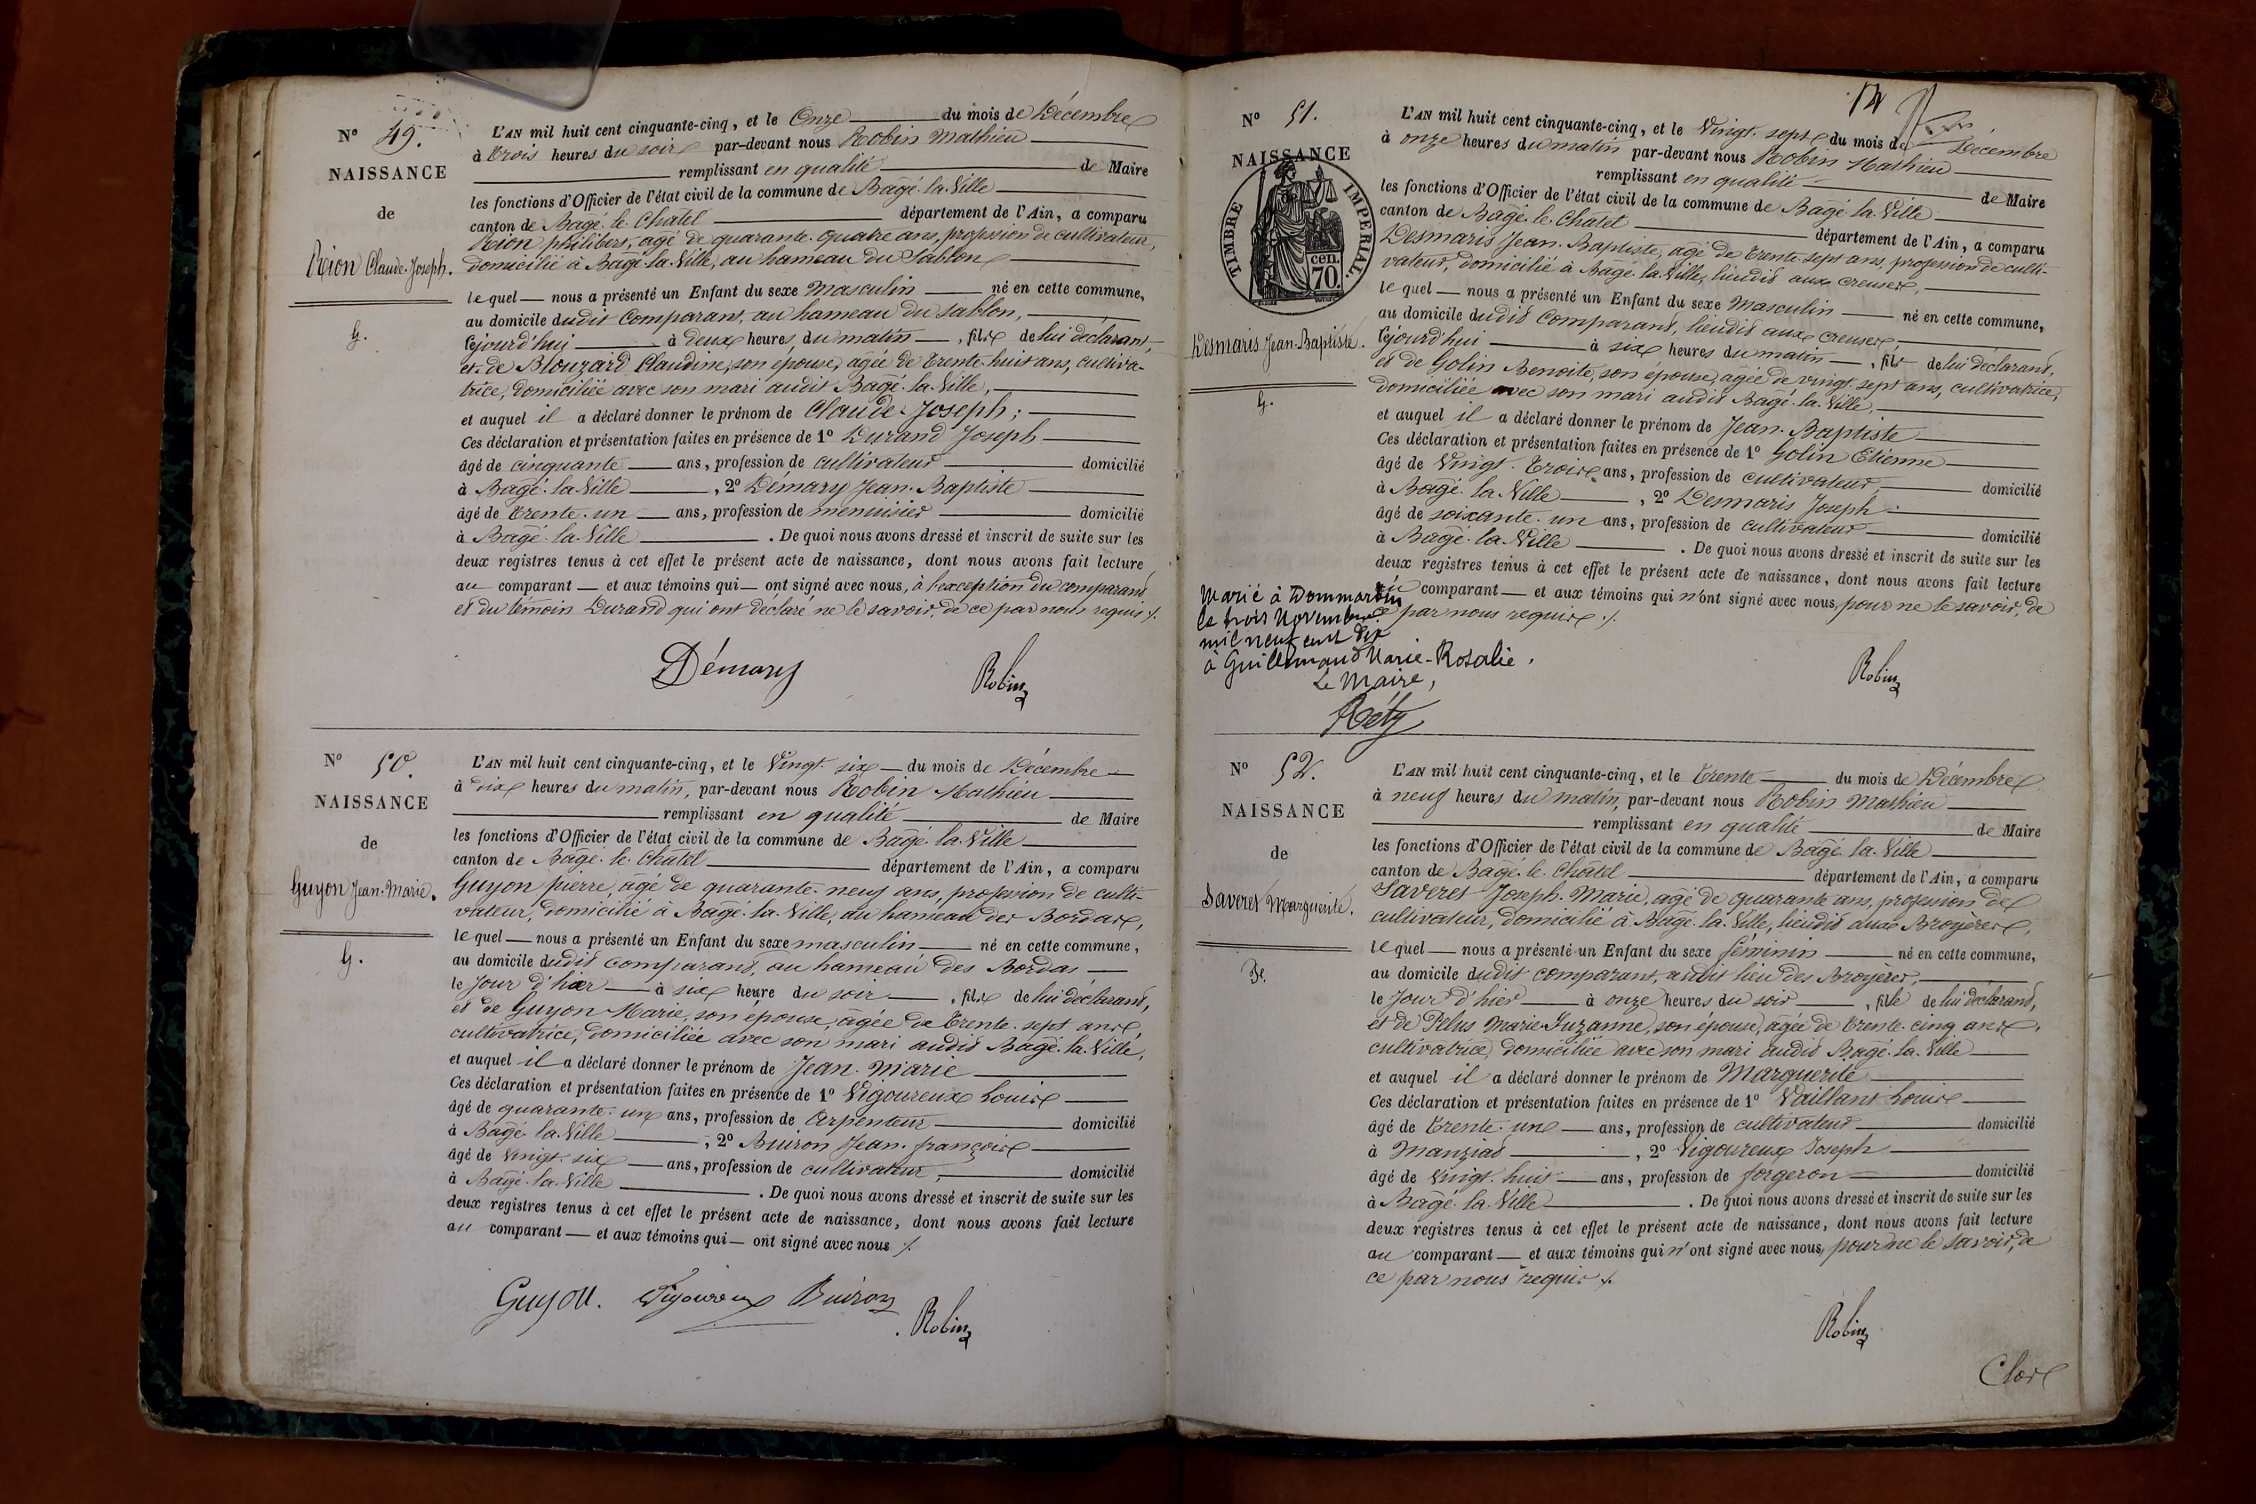 N° 49.
NAISSANCE
de
Rion Claude-Joseph.
G.
L'AN mil huit cent cinquante-cinq, et le Onze du mois de Décembre
à trois heures du soir par-devant nous Robin Mathieu
remplissant en qualité de Maire
les fonctions d'Officier de l'état civil de la commune de Bagé-la-Ville
canton de Bagé-le-Châtel département de l'Ain, a comparu
Rion philibert, agé de quarante-quatre ans, profession de cultivateur,
domicilié à Bagé-la-Ville, au hameau du Sablon
lequel nous a présenté un Enfant du sexe masculin né en cette commune,
au domicile dudit Comparant, au hameau du Sablon,
cejourd'hui à deux heures du matin, fils de lui déclarant,
et de Blouzard Claudine, son épouse, agée de trente-huit ans, cultiva-
trice, domiciliée avec son mari audit Bagé-la-Ville,
et auquel il a déclaré donner le prénom de Claude-Joseph;
Ces déclaration et présentation faites en présence de 1° Durand Joseph
âgé de cinquante ans, profession de cultivateur domicilié
à Bagé-la-Ville, 2° Démary Jean-Baptiste
âgé de trente-un ans, profession de menuisier domicilié
à Bagé-la-Ville. De quoi nous avons dressé et inscrit de suite sur les
deux registres tenus à cet effet le présent acte de naissance, dont nous avons fait lecture
au comparant et aux témoins qui ont signé avec nous, à l'exception du comparant
et du témoin Durand qui ont déclaré ne le savoir, de ce par nous requis ./.
Démary Robin
N° 50.
NAISSANCE
de
Guyon Jean-Marie.
G.
L'AN mil huit cent cinquante-cinq, et le Vingt-six du mois de Décembre
à dix heures du matin, par-devant nous Robin Mathieu
remplissant en qualité de Maire
les fonctions d'Officier de l'état civil de la commune de Bagé-la-Ville
canton de Bagé-le-Châtel département de l'Ain, a comparu
Guyon pierre, âgé de quarante-neuf ans, profession de culti-
vateur, domicilié à Bagé-la-Ville, au hameau des Bordas,
lequel nous a présenté un Enfant du sexe masculin né en cette commune,
au domicile dudit comparant, au hameau des Bordas
le jour d'hier à six heure du soir, fils de lui déclarant,
et de Guyon Marie, son épouse, âgée de trente-sept ans,
cultivatrice, domiciliée avec son mari audit Bagé-la-Ville,
et auquel il a déclaré donner le prénom de Jean-Marie
Ces déclaration et présentation faites en présence de 1° Vigoureux Louis
âgé de quarante-un ans, profession de Carpenteur domicilié
à Bagé-la-Ville, 2° Buiron Jean-françois
âgé de vingt-six ans, profession de cultivateur, domicilié
à Bagé-la-Ville. De quoi nous avons dressé et inscrit de suite sur les
deux registres tenus à cet effet le présent acte de naissance, dont nous avons fait lecture
au comparant et aux témoins qui ont signé avec nous ./.
Guyon. Vigoureux Buiron Robin
12
N° 51.
NAISSANCE
TIMBRE IMPERIAL.
70 cen.
Desmaris Jean-Baptiste.
G.
L'AN mil huit cent cinquante-cinq, et le Vingt-sept du mois de Décembre
à onze heures du matin par-devant nous Robin Mathieu
remplissant en qualité de Maire
les fonctions d'Officier de l'état civil de la commune de Bagé-la-Ville
canton de Bagé-le-Châtel département de l'Ain, a comparu
Desmaris Jean-Baptiste, âgé de trente-sept ans, profession de culti-
vateur, domicilié à Bagé-la-Ville, lieudit aux Creuses,
lequel nous a présenté un Enfant du sexe Masculin né en cette commune,
au domicile dudit Comparant, lieudit aux Creuses,
cejourd'hui à six heures du matin, fils de lui déclarant,
et de Golin Benoite, son épouse, âgée de vingt-sept ans, cultivatrice,
domiciliée avec son mari audit Bagé-la-Ville,
et auquel il a déclaré donner le prénom de Jean-Baptiste
Ces déclaration et présentation faites en présence de 1° Golin Etienne
âgé de Vingt-trois ans, profession de cultivateur, domicilié
à Bagé-la-Ville, 2° Desmaris Joseph
âgé de soixante-un ans, profession de cultivateur domicilié
à Bagé-la-Ville. De quoi nous avons dressé et inscrit de suite sur les
deux registres tenus à cet effet le présent acte de naissance, dont nous avons fait lecture
au comparant et aux témoins qui n'ont signé avec nous, pour ne le savoir, de
ce par nous requis ./.
Marié à Dommartin
le trois Novembre
mil neuf cent dix
à Guillemaud Marie-Rosalie.
Le Maire,
Réty
Robin
N° 52.
NAISSANCE
de
Saveret Marguerite.
Fe.
L'AN mil huit cent cinquante-cinq, et le trente du mois de Décembre
à neuf heures du matin, par-devant nous Robin Mathieu
remplissant en qualité de Maire
les fonctions d'Officier de l'état civil de la commune de Bagé-la-Ville
canton de Bagé-le-Châtel département de l'Ain, a comparu
Saveret Joseph-Marie, agé de quarante ans, profession de
cultivateur, domicilié à Bagé-la-Ville, lieudit aux Broyères,
lequel nous a présenté un Enfant du sexe féminin né en cette commune,
au domicile dudit comparant, audit lieu des Broyères,
le Jour d'hier à onze heures du soir, fille de lui déclarant,
et de Pelus Marie-Suzanne, son épouse, âgée de trente-cinq ans,
cultivatrice, domiciliée avec son mari audit Bagé-la-Ville
et auquel il a déclaré donner le prénom de Marguerite
Ces déclaration et présentation faites en présence de 1° Vaillant Louis
âgé de trente-un ans, profession de cultivateur domicilié
à Manziat, 2° Vigoureux Joseph
âgé de vingt-huit ans, profession de forgeron domicilié
à Bagé-la-Ville. De quoi nous avons dressé et inscrit de suite sur les
deux registres tenus à cet effet le présent acte de naissance, dont nous avons fait lecture
au comparant et aux témoins qui n'ont signé avec nous, pour ne le savoir, de
ce par nous requis ./.
Robin
Clos